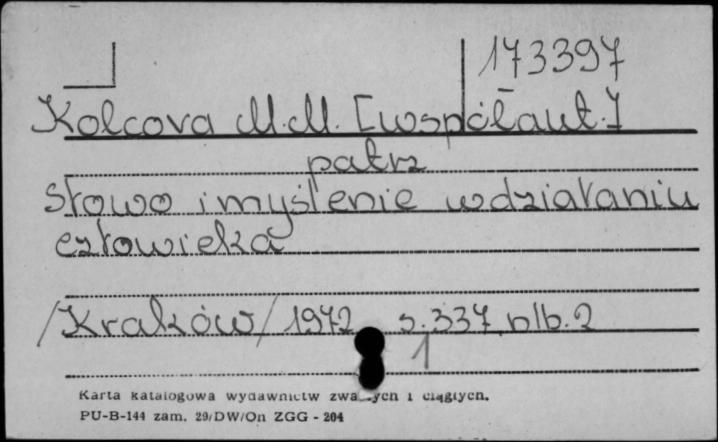 173397
Kolcova M.M. [współaut.]
patrz
Słowo i myślenie w działaniu
człowieka
/Kraków/ 1972 s. 337 nlb. 2
1
Karta katalogowa wydawnictw i ciągłych.
PU-B-144 zam. 29/DW/On ZGG - 204